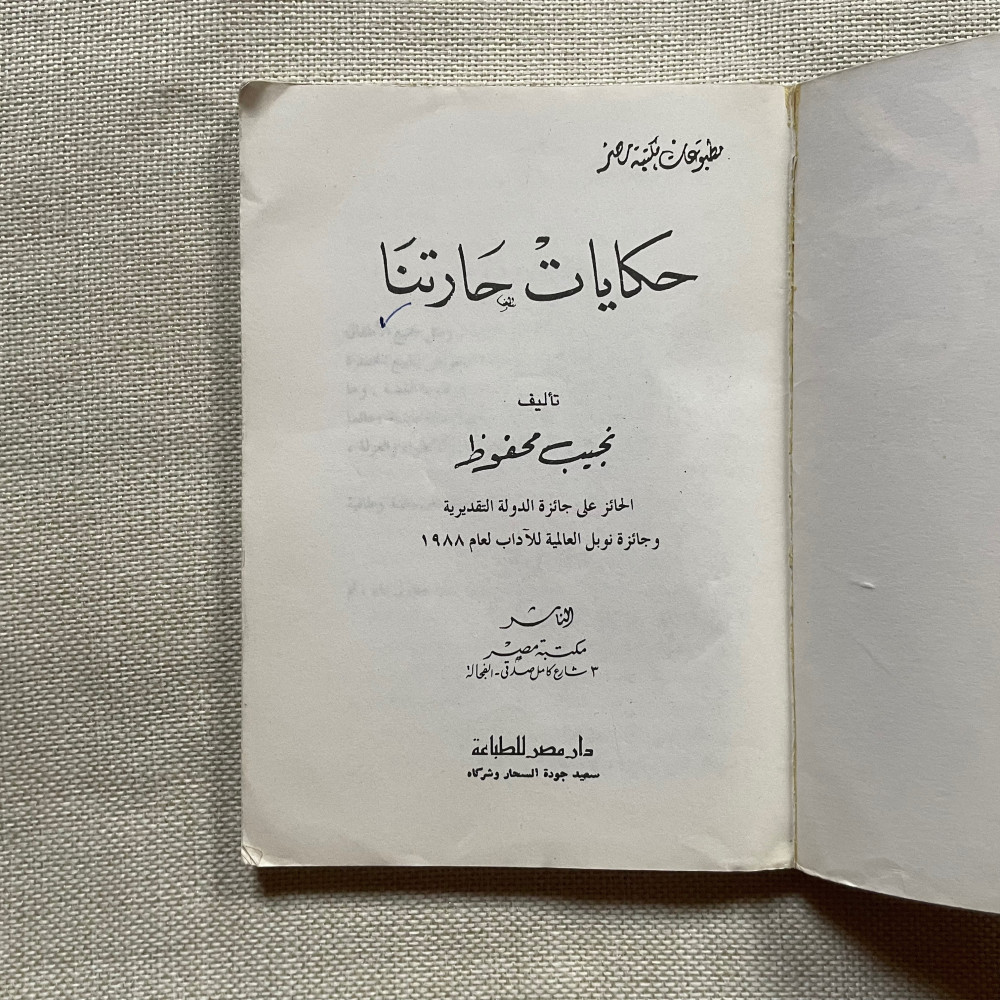 مطبوعات مكتبة مصر
حكايات حارتنا
تأليف
نجيب محفوظ
الحائز على جائزة الدولة التقديرية
وجائزة نوبل العالمية للآداب لعام ١٩٨٨
الناشر
مكتبة مصر
٣ شارع كامل صدقى - الفجالة
دار مصر للطباعة
سعيد جودة السحار وشركاه